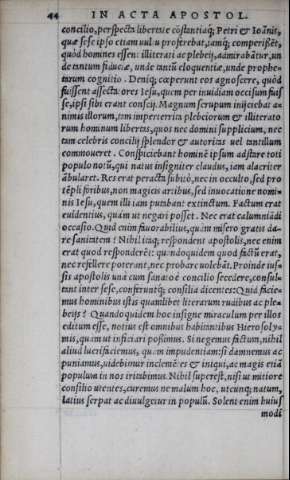 44 IN ACTA APOSTOL.
concilio, perspecta libertate cōstantiaq; Petri & Ioānis,
quæ sese ipso etiam uultu proferebat, iamq; comperisset,
quòd homines essent illiterati ac plebeij, admirabatur, un
de tantum fiduciæ, unde tantū eloquentiæ, unde prophe-
tarum cognitio. Deniq; cœperunt eos agnoscere, quòd
fuissent assectatores Iesu, quem per inuidiam occisum fuis
se, ipsi sibi erant conscij. Magnum scrupum inijciebat a-
nimis illorum, tam imperterrita plebeiorum & illiterato
rum hominum libertas, quos nec domini supplicium, nec
tam celebris concilij splendor & autoritas uel tantillum
commoueret. Conspiciebant hominē ipsum adstare toti
populo notū, qui natus insigniter claudus, iam alacriter
ābularet. Res erat peracta subitò, nec in occulto, sed pro
tēpli foribus, non magicis artibus, sed inuocatione nomi-
nis Iesu, quem illi iam putabant extinctum. Factum erat
euidentius, quàm ut negari posset. Nec erat calumniādi
occasio. Quid enim fauorabilius, quàm misero gratis da-
re sanitatem? Nihil itaq; respondent apostolis, nec enim
erat quod responderēt: quandoquidem quod factū erat,
nec refellere poterant, nec probare uolebāt. Proinde ius-
sis apostolis unà cum sanato è concilio secedere, consul-
tant inter sese, conferuntq; consilia dicentes: Quid facie-
mus hominibus istis quamlibet literarum rudibus ac ple-
beijs? Quandoquidem hoc insigne miraculum per illos
editum esse, notius est omnibus habitantibus Hierosoly-
mis, quàm ut inficiari possimus. Si negamus factum, nihil
aliud lucrifaciemus, quàm impudentiam: si damnemus ac
puniamus, uidebimur inclemētes & iniqui, ac magis etiā
populum in nos irritabimus. Nihil superest, nisi ut mitiore
consilio utentes, curemus ne malum hoc, utcunq; natum,
latius serpat ac diuulgetur in populū. Solent enim huius
modi